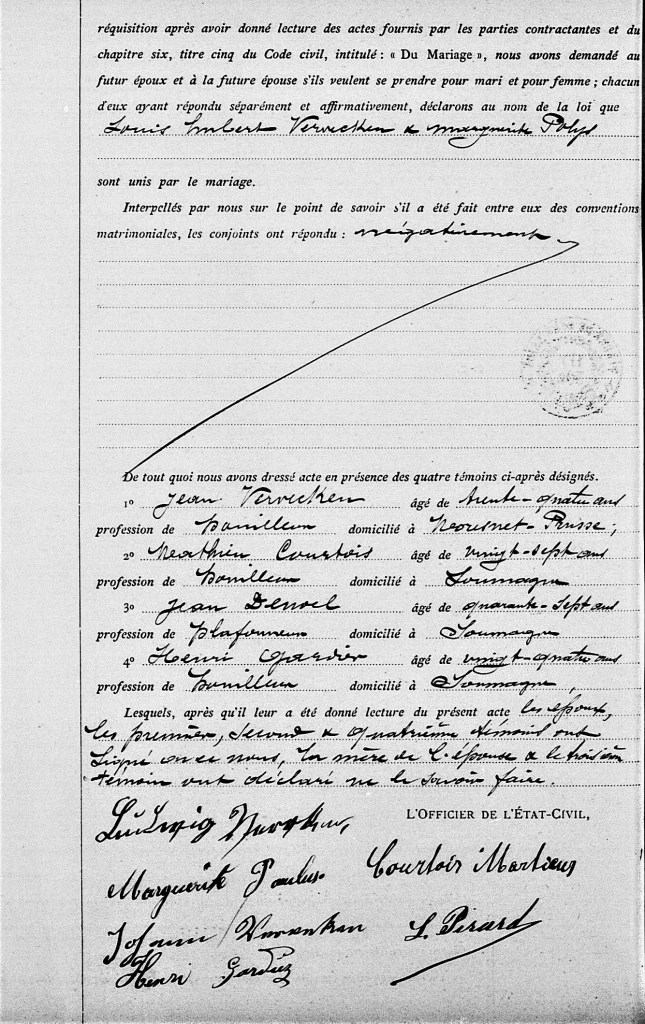 réquisition après avoir donné lecture des actes fournis par les parties contractantes et du
chapitre six, titre cinq du Code civil, intitulé : « Du Mariage », nous avons demandé au
futur époux et à la future épouse s'ils veulent se prendre pour mari et pour femme ; chacun
d'eux ayant répondu séparément et affirmativement, déclarons au nom de la loi que
Louis Hubert Vervecken & Marguerite Polys
sont unis par le mariage.
Interpellés par nous sur le point de savoir s'il a été fait entre eux des conventions
matrimoniales, les conjoints ont répondu : négativement
De tout quoi nous avons dressé acte en présence des quatre témoins ci-après désignés.
1o Jean Vervecken âgé de trente-quatre ans
profession de houilleur domicilié à Moresnet-Prusse ;
2o Mathieu Courtois âgé de vingt-sept ans
profession de houilleur domicilié à Soumagne
3o Jean Denoel âgé de quarante-sept ans
profession de plafonneur domicilié à Soumagne
4o Henri Gardier âgé de vingt-quatre ans
profession de houilleur domicilié à Soumagne,
Lesquels, après qu'il leur a été donné lecture du présent acte les époux,
les premier, second & quatrième témoins ont
signé avec nous, la mère de l'épouse & le troisième
témoin ont déclaré ne le savoir faire.
Ludwig
L'OFFICIER DE L'ÉTAT-CIVIL,
Marguerite Paulus
Courtois
Johann
L. Pirard
Henri